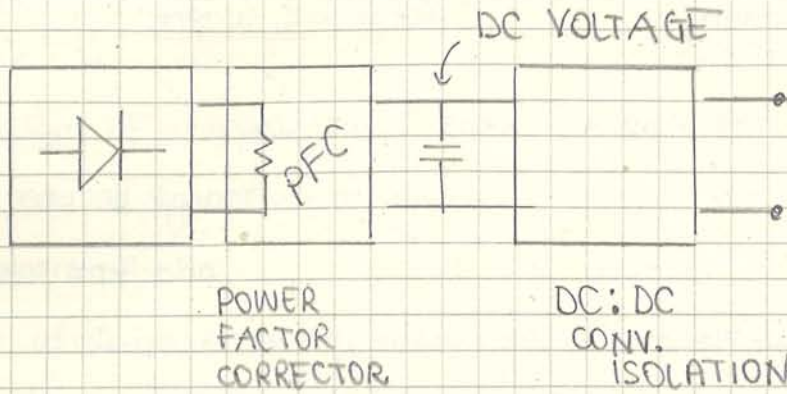 DC VOLTAGE
PFC
POWER
FACTOR
CORRECTOR
DC: DC
CONV.
ISOLATION